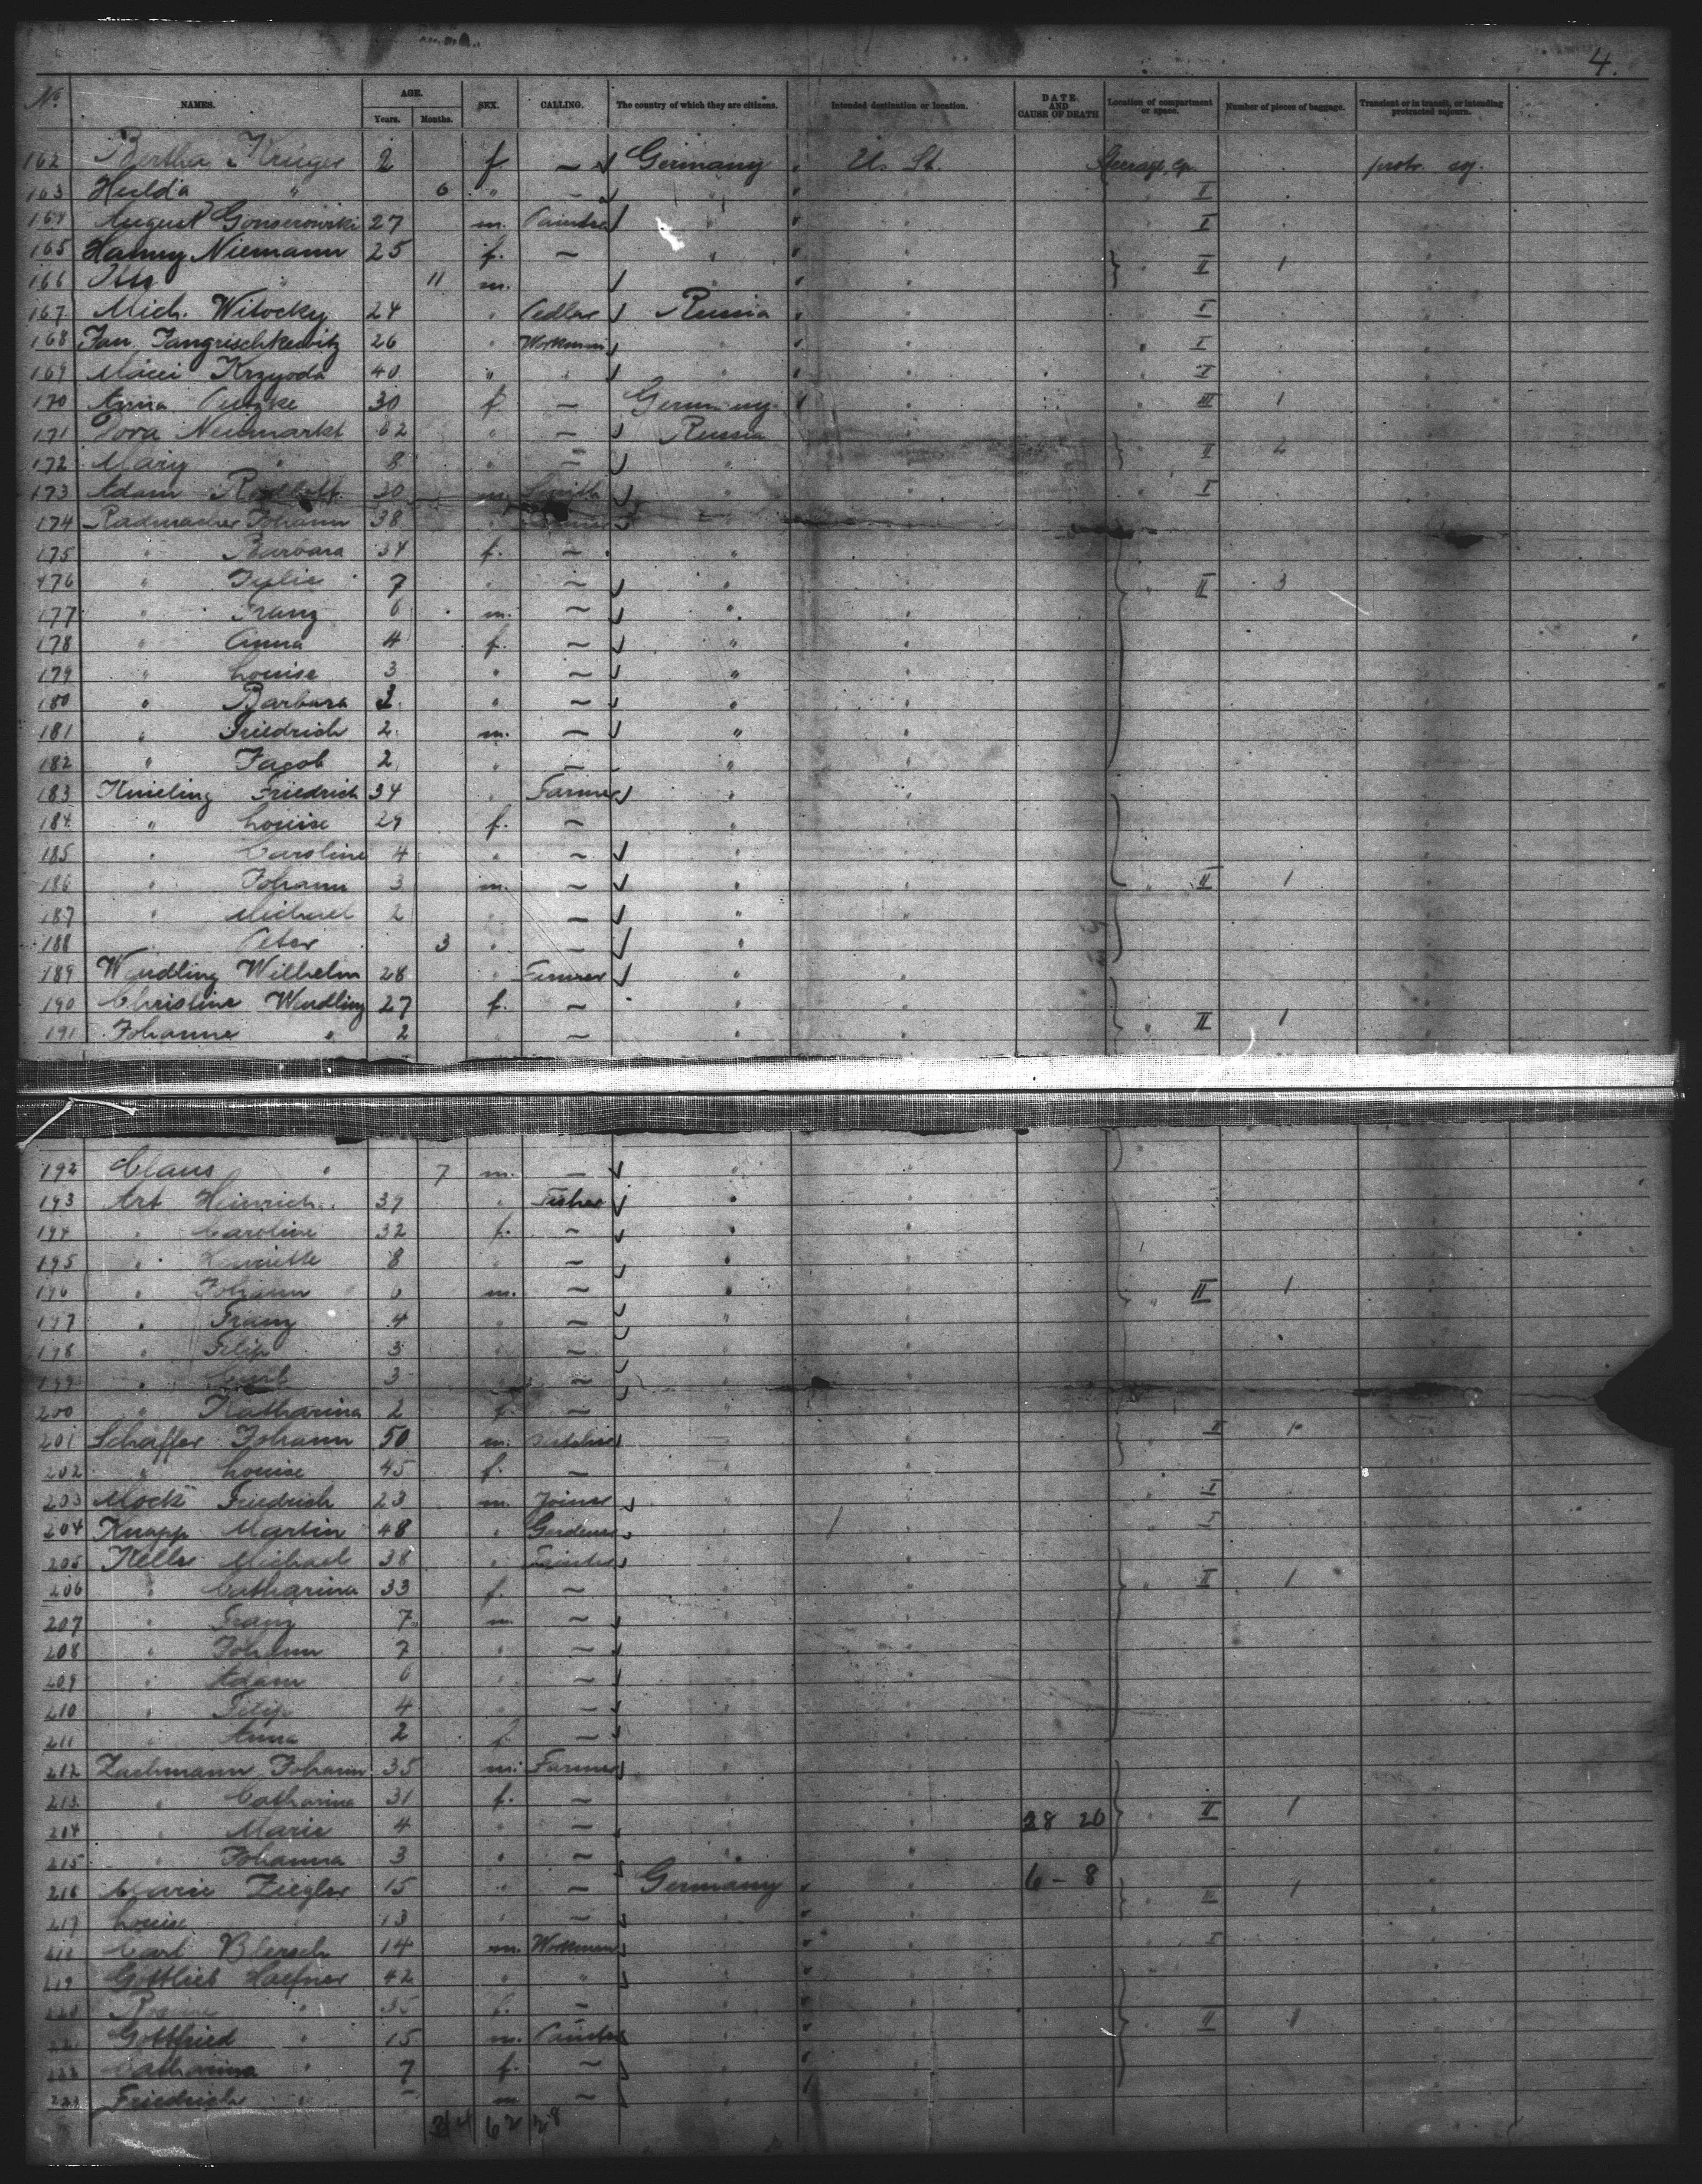 4.
No. NAMES. AGE. Years. Months. SEX. CALLING. The country of which they are citizens. Intended destination or location. DATE AND CAUSE OF DEATH Location of compartment or space. Number of pieces of baggage. Transient or in transit, or intending protracted sojourn.
162 Bertha Krüger 2 f — Germany U. St. Steerage protr. soj.
163 Hulda " 6 " — " " I
164 August Gonserowski 27 m. Painter " I
165 Hanny Niemann 25 f. — " II 1
166 " 11 m. "
167 Mich. Witocky 24 " Pedlar Russia I
168 Jan Jangrischkewitz 26 " Workman " I
169 Maici Krzyoda 40 " " " I
170 Anna 30 f — Germany III 1
171 Dora Neumarkt 62 " — Russia II 2
172 Mary " 8 " — "
173 Adam 30 m. Smith " I
174 Radmacher Johann 38 "
175 " Barbara 34 f. — "
176 " Julie 7 " — " II 3
177 " Franz 6 m. — "
178 " Anna 4 f. — "
179 " Louise 3 " — "
180 " Barbara 3 " — "
181 " Friedrich 2 m. — "
182 " Jacob 2 " — "
183 Knieling Friedrich 34 " Farmer "
184 " Louise 29 f. — "
185 " Caroline 4 " — "
186 " Johann 3 m. — " II 1
187 " Michael 2 " — "
188 " Peter 3 " — "
189 Wendling Wilhelm 28 " Farmer "
190 Christine Wendling 27 f. — "
191 Johanne " 2 — " II 1
192 Claus " 7 m. — "
193 Art Heinrich 37 " Fisher "
194 " Caroline 32 f. — "
195 " Henriette 8 " — "
196 " Johann 6 m. — " II 1
197 " Franz 4 " — "
198 " Filip 3 " —
199 " Carl 3 " —
200 " Katharina 2 f. — "
201 Schäffer Johann 50 m. II 1
202 " Louise 45 f. —
203 Mock Friedrich 23 m. Joiner " I
204 Knapp Martin 48 " Gardener I
205 Keller Michael 38 "
206 " Catharina 33 f. — II 1
207 " Franz 7 m. —
208 " Johann 7 " —
209 " Adam 6 " —
210 " Filip 4 " —
211 " Anna 2 f. —
212 Zachmann Johann 35 m. Farmer
213 " Catharina 31 f. — II 1
214 " Marie 4 " — 28 20
215 " Johanna 3 " — "
216 Marie Ziegler 15 " — Germany 6 - 8 III 1
217 Louise " 13 " —
218 Carl Blersch 14 m. Workman I
219 Gottlieb Haefner 42 " "
220 Rosine " 35 f. — II 1
221 Gottfried " 15 m. Painter
222 Catharina " 7 f. —
223 Friedrich " — m —
34 62 28